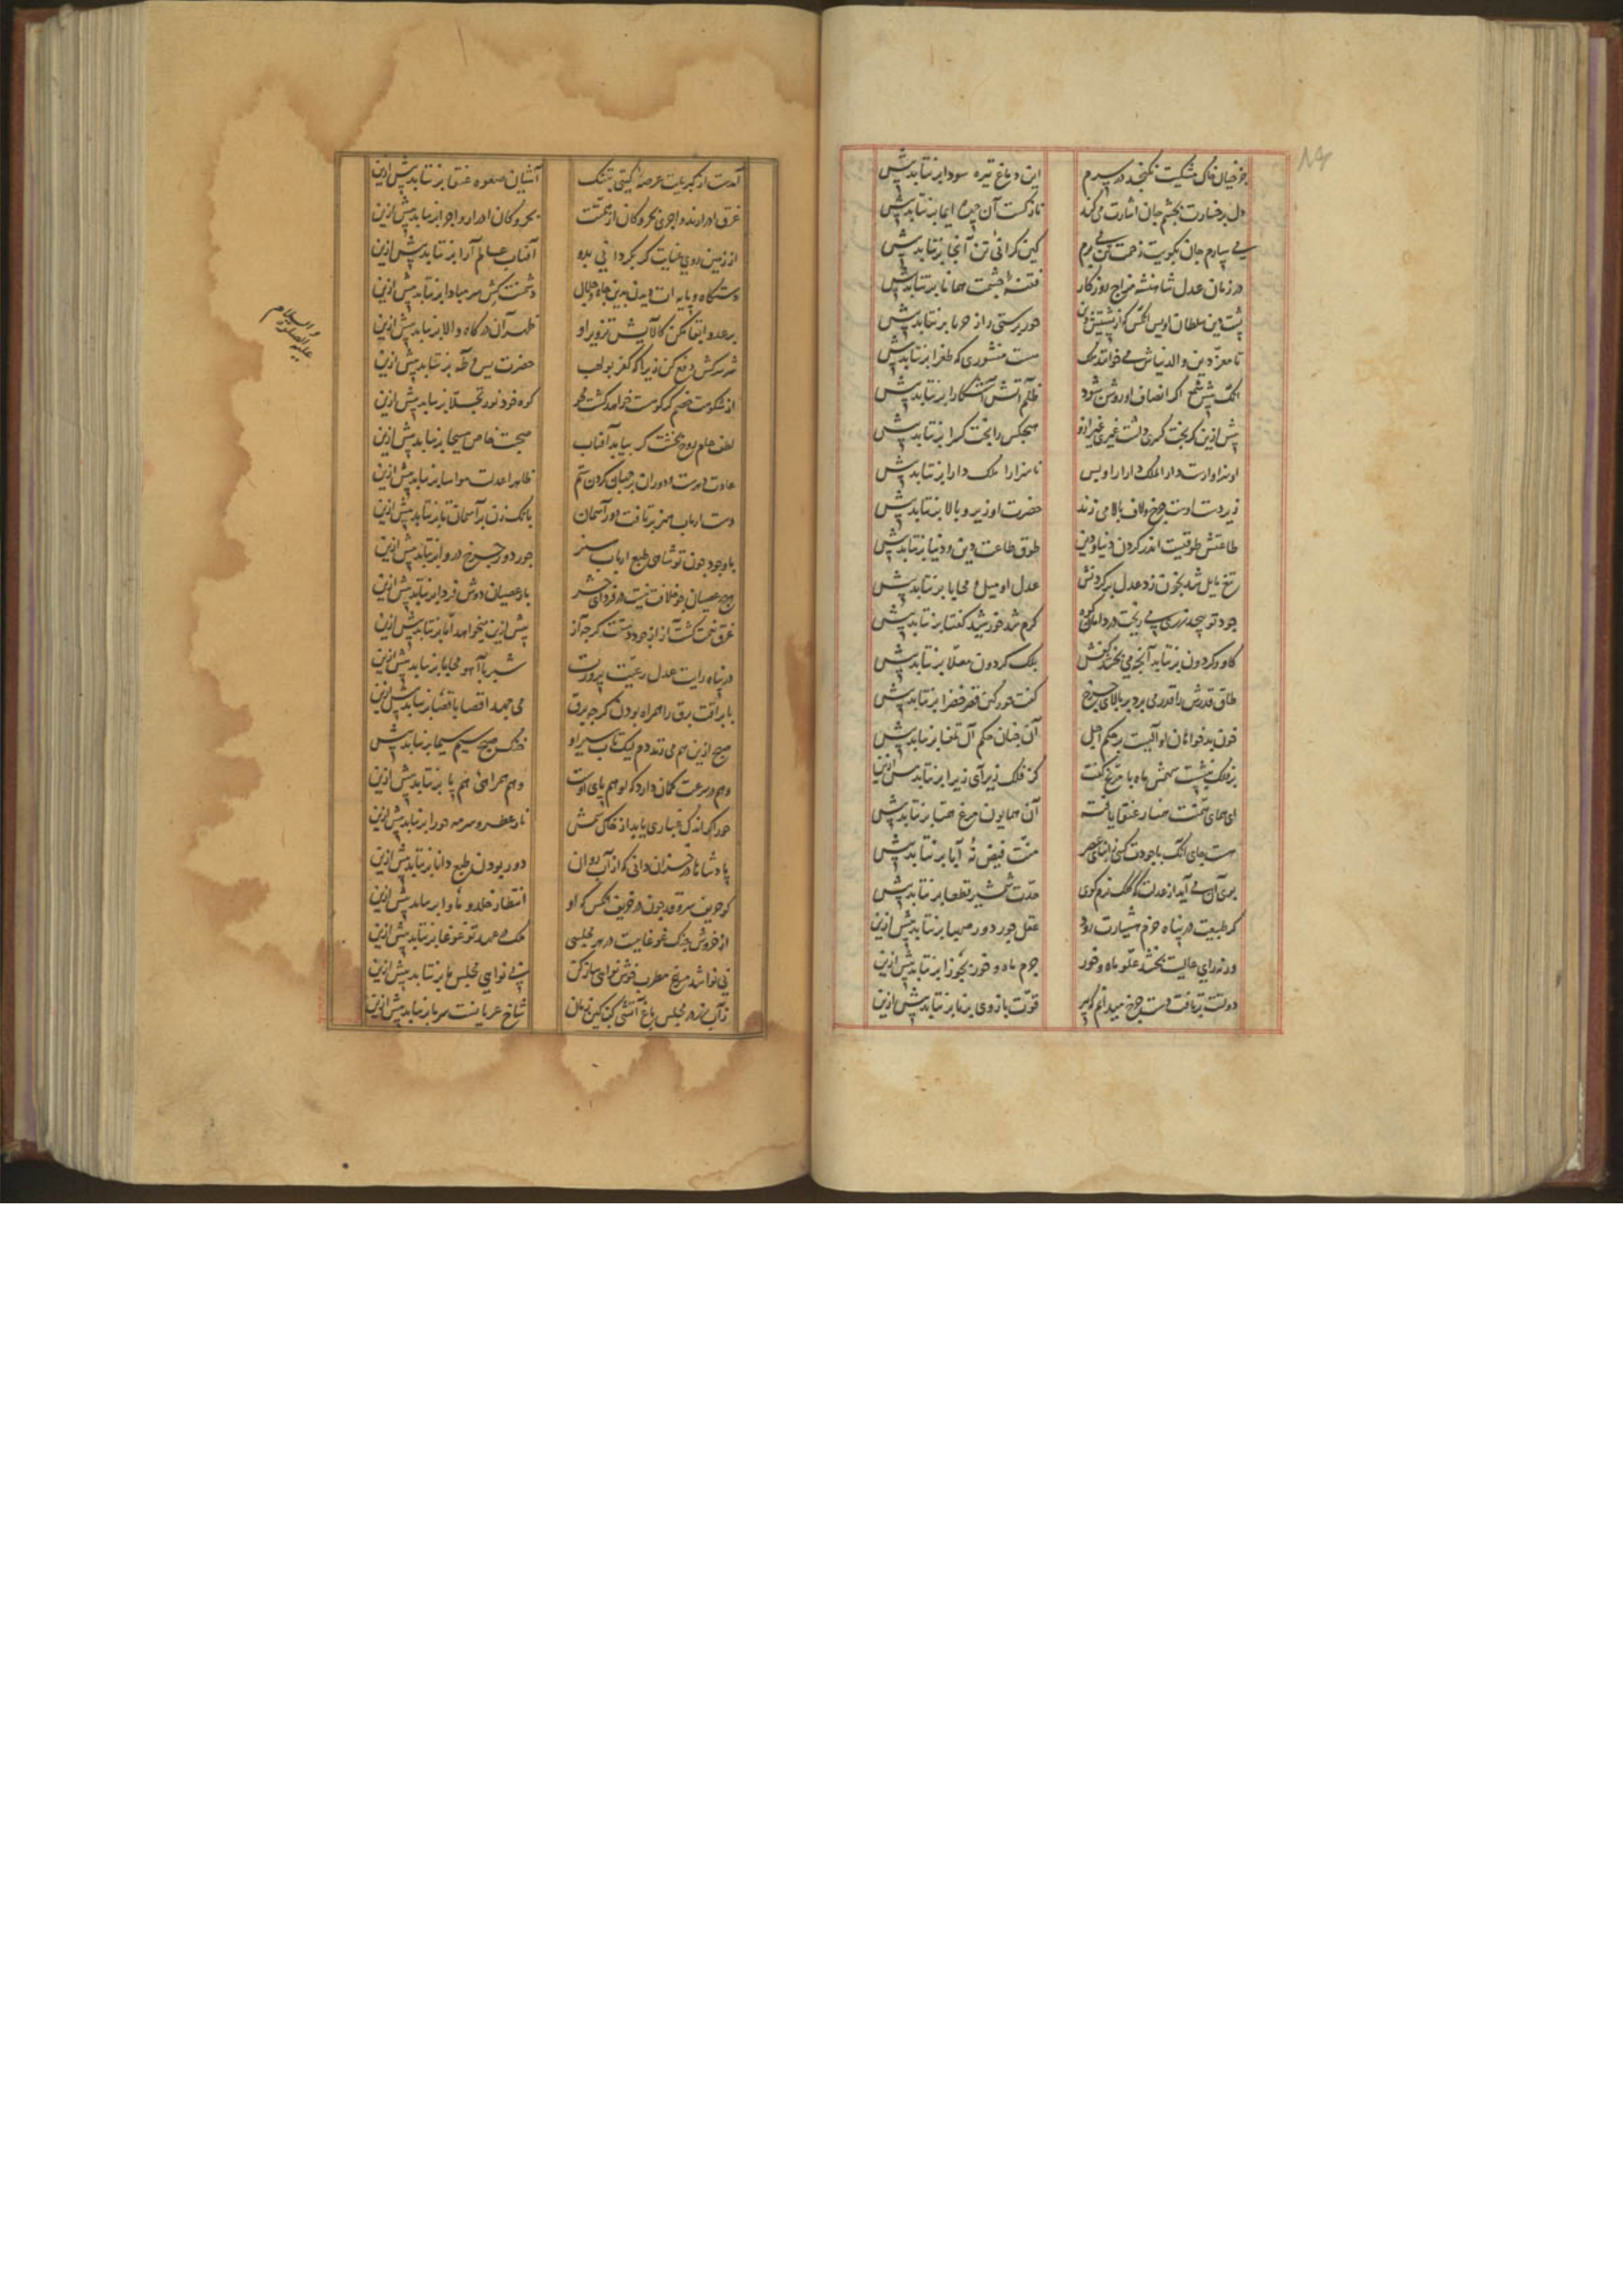 جز خیال خاک مشکینت نگنجد در سرم این دماغ تیره سودا برنتابد بیش
دل بر خسارت بچشم جان اشارت می کند نازکست آن ایما برنتابد بیش
می سپارم جان بکویت زحمت تن می برم کین گرانی تن آنجا برنتابد بیش
در زمان عدل شاهنشه مزاج روزگار فتنهٔ چشمت همانا برنتابد بیش
پشت دین سلطان اویس آنکس کو از پشتیش حور برستی راز برنتابد بیش
تا معز دین والدنیاش می خوانند ملک هست منشوری که طغرا برنتابد بیش
پیش شمع اگر انصاف او روشن شود ظلم آتش آشکارا برنتابد بیش
پیش ازین گر بخت کسری داشت غیری غیر ازو هیچکس را بخت کسرا برنتابد بیش
اوسزاوارست دار الملک دارا را و بس ناسزا را ملک دارا برنتابد بیش
زیردست اوست چرخ ولاف بالا می زند حضرت او زیر و بالا برنتابد بیش
طاعتش طوقیست اندر گردن دنیا و دین طوق طاعت دین و دنیا برنتابد بیش
تیغ مایل شد بخون زد عدل بر گردنش عدل او میل و محابا برنتابد بیش
جود تو زری می ریخت در دامان کوه گرم شد خورشید گفتا برنتابد بیش
گاو گردون برنتابد آنچه می بخشد کفش بلک گردون معلّا برنتابد بیش
طاق قدرش را قدر می برد بر بالای چرخ گفت قصر خضرا برنتابد بیش
خون بدخواهان او آلیست بر حکم اجل آن چنان حکم آل تمغا برنتابد بیش
بر فلک سهمش ماه با مریخ گفت کز فلک زیر آی زیرا برنتابد بیش ازین
ای همای همتت عنقا یافته آن همایون مرغ برنتابد بیش
هست جای آنک با جودت کسی ز ابنای عصر منّت فیض نه آبا برنتابد بیش
بوی آن می آید از عدلت که گلک نرم گوی حدّت شمشیر قطعا برنتابد بیش
گر طبیعت در پناه حزم هشیارت رود عقل جور دور صهبا برنتابد بیش ازین
ور نه رای عالیت بخشد علو ماه و خور جرم ماه و خور برنتابد بیش ازین
دولتت برتافت دست چرخ میدانم که پیر قوّت بازوی برنا برنتابد بیش ازین
آمدست از کبریایت عرصهٔ گیتی بتنگ آشیان صعوه عنقا برنتابد بیش ازین
غرق ادرارند و اجری بحر و کان از همتت بحر و کان ادرار و اجرا برنتابد بیش ازین
از زمین روی عنایت گر بگردانی بدو آفتاب عالم آرا برنتابد بیش ازین
دستگاه و پایه ات دیدن بدین جاه و جلال دشمنت کش سر مبادا برنتابد بیش ازین
بر عدو ابقا مکن کالایش تزویر او درگاه والا برنتابد بیش ازین
شر سرکش دفع کن زیرا که کفر بولهب حضرت یس و طه برنتابد بیش ازین
از شکوهت خصم گر کوهست خواهد گشت محو کوه خود نور تجلّا برنتابد بیش ازین
لطف حلم روح بخشت گر بیابد آفتاب صحبت خاص مسیحا برنتابد بیش ازین
عادت دهرست و دوران بر جهان کردن ستم ظاهرا عدلت مواسا برنتابد بیش ازین
دست ارباب هنر برتافت دور آسمان بانگ زن بر آسمان تا برنتابد بیش ازین
با وجود چون تو شاهی طبع ارباب جور دور چرخ دروا برنتابد بیش ازین
هیچ عصیان جز خلافت نیست در فردای حشر بار عصیان دوش فردا برنتابد بیش ازین
غرق نعمت گشت آز از جود دستت گرچه آز بیش ازین میخواهد امّا برنتابد بیش ازین
در پناه رایت عدل رعیت پرورت شیر با آهو محابا برنتابد بیش ازین
با براقت برق را همراه بودن گرچه برق می جهد اقصا باقصا برنتابد بیش ازین
صبح ازین هم می زند دم لیک تاب سیر او خنگ صبح سیم سیما برنتابد بیش
وهم در سرعت گمان دارد که او هم پای اوست وهم همراهی هم پا برنتابد بیش ازین
حور اگر اندک غباری یابد از خاک سمش ناز عطر و سرمه حورا برنتابد بیش ازین
پادشاها در خزان دانی که از آب روان دور بودن طبع دانا برنتابد بیش ازین
کو حریف سروقد چون در خریف آنکس که او انتظار خلد و ماوا برنتابد بیش ازین
از خروش چنگ غوغاییست در هر مجلسی ملک در عهد تو غوغا برنتابد بیش ازین
بی نوا شد مرغ مطرب خوش نوای ساز کن بی نوایی مجلس ما برنتابد بیش ازین
زآب رز در مجلس باغ آتشی کن کین زمان شاخ عریانست سرما برنتابد بیش ازین
علیه الصلوة والسلام